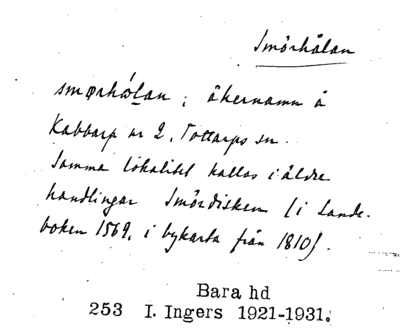 Smörhålan
smørhålan ; åkernamn å
Kabbarp nr 2, Tottarps sn.
Samma lokalitet kallas i äldre
handlingar Smördisken (i Lande-
boken 1569, i bykarta från 1810).
Bara hd
253 I. Ingers 1921-1931.